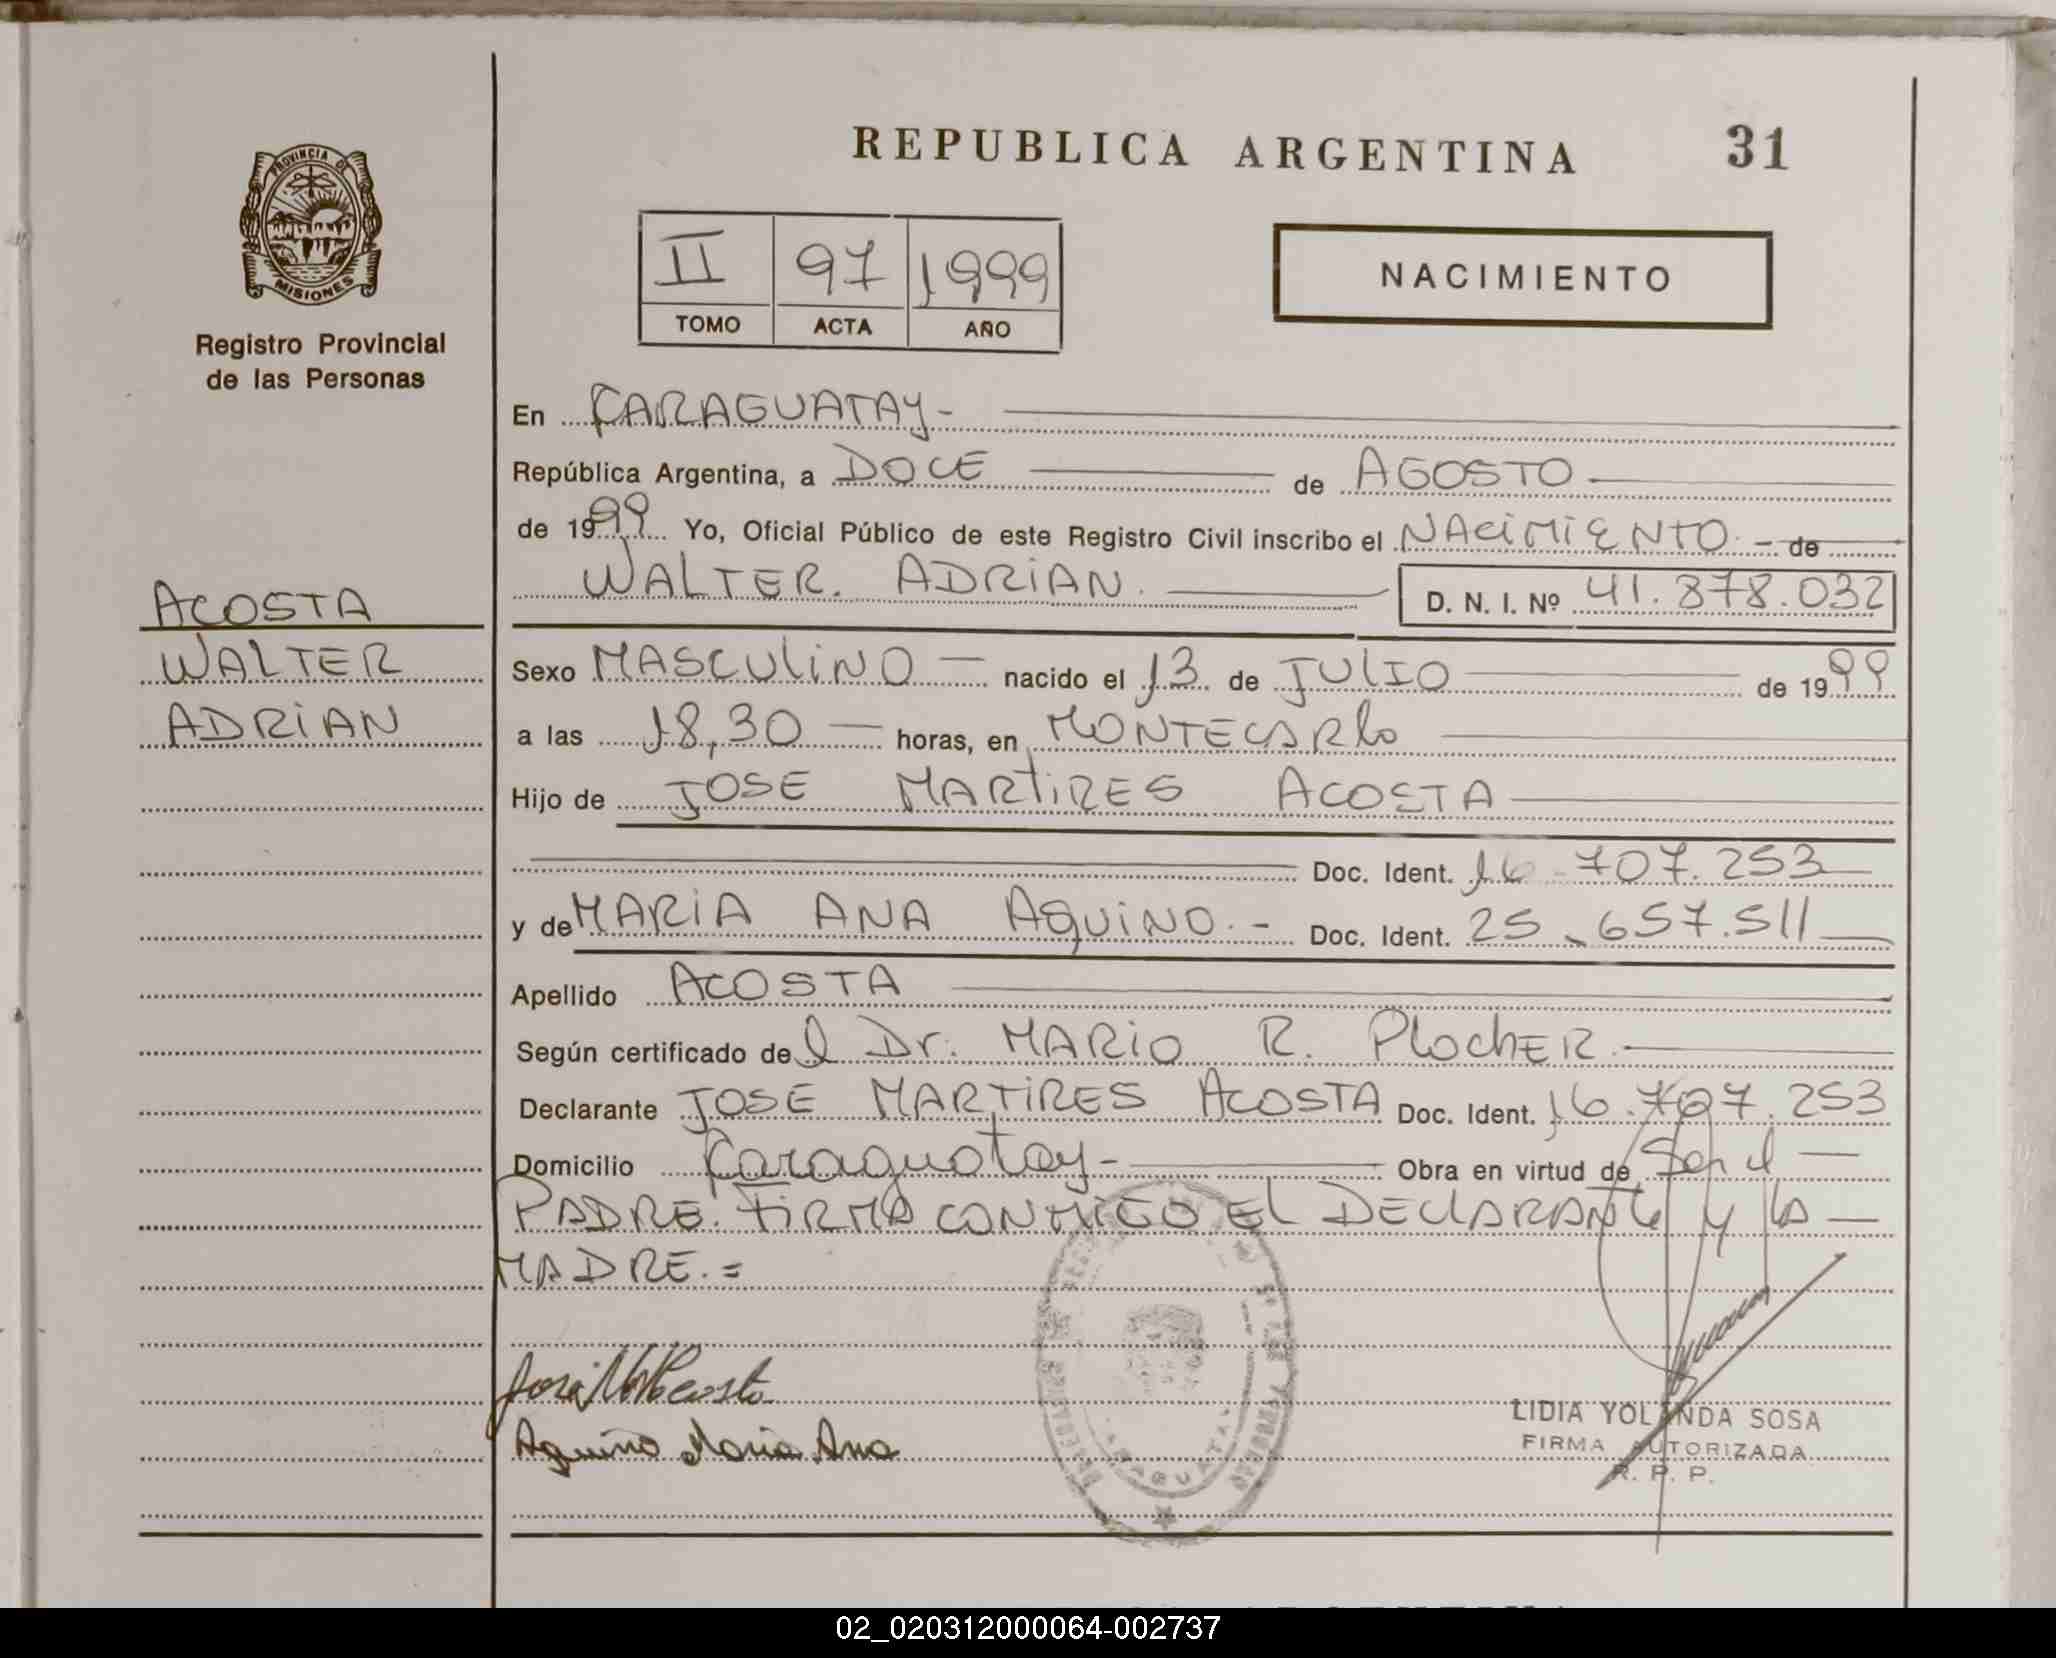 REPUBLICA ARGENTINA 31
PROVINCIA DE
MISIONES
Registro Provincial
de las Personas
II 97 1999
TOMO ACTA AÑO
NACIMIENTO
En CARAGUATAY-
República Argentina, a DOCE de AGOSTO
de 1999 Yo, Oficial Público de este Registro Civil inscribo el NACIMIENTO - de
WALTER. ADRIAN. D. N. I. Nº 41.878.032
ACOSTA
WALTER
ADRIAN
Sexo MASCULINO nacido el 13 de JULIO de 1999
a las 18,30 horas, en MONTECARLO
Hijo de JOSE MARTIRES ACOSTA
Doc. Ident. 16.707.253
y de MARIA ANA AQUINO.- Doc. Ident. 25.657.511
Apellido ACOSTA
Según certificado del Dr. MARIO R. PLOCHER.
Declarante JOSE MARTIRES ACOSTA Doc. Ident. 16.707.253
Domicilio Caraguatay- Obra en virtud de Ser el
PADRE. FIRMA CONMIGO EL DECLARANTE Y LA
MADRE.=
Aquino Maria Ana
LIDIA YOLANDA SOSA
FIRMA AUTORIZADA
R. P. P.
02_020312000064-002737